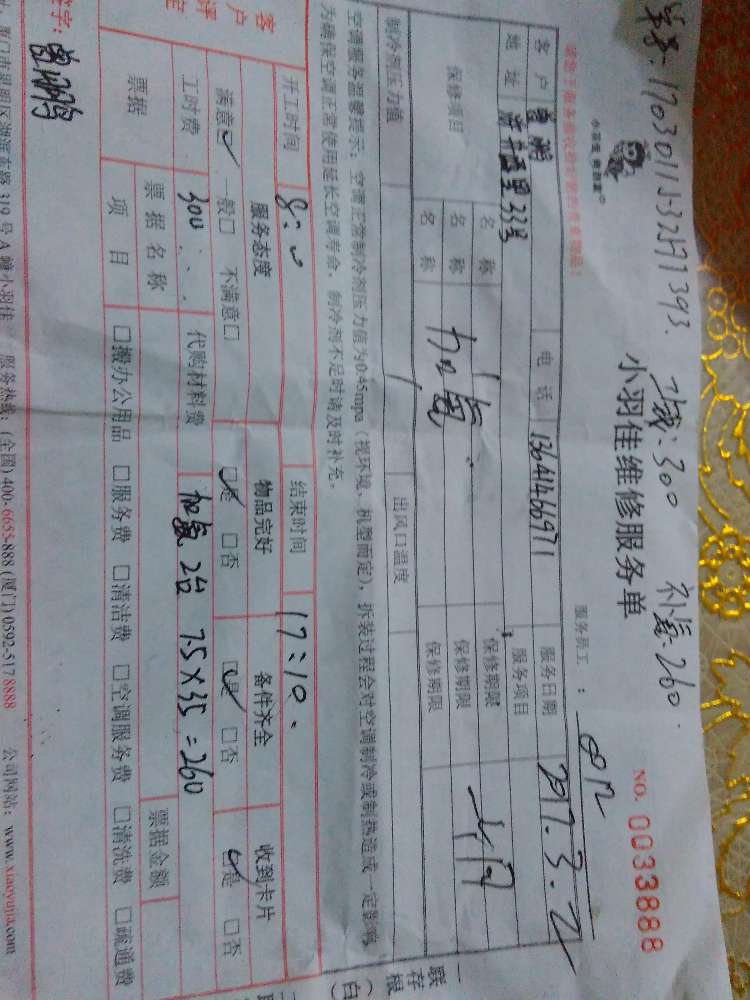 单号:1703011532571393. 机:300 补氟:260.
小羽佳维修服务单
NO. 0033888
服务员工:
客户 曾鹏 电话 13641466971 服务日期 2017.3.2
地址 333号 服务项目
保修项目 名称 保修期限
名称 加氟 保修期限
名称 保修期限
制冷剂压力值 出风口温度
空调服务温馨提示:空调正常制冷剂压力值为0.45mpa(视环境、机型而定),拆装过程会对空调制冷或制热造成一定影响,
为确保空调正常使用延长空调寿命,制冷剂不足时请及时补充。
客户评定
开工时间 结束时间 17:10.
服务态度 物品完好 备件齐全 收到卡片
满意☑ 一般□ 不满意□ ☑是 □否 ☑是 □否 ☑是 □否
工时费 300 代购材料费 加氟 2台 7.5×35=260
票据 票据名称 票据金额
项目 □搬办公用品 □服务费 □清洁费 □空调服务费 □清洗费 □疏通费
签字:
319号A幢小羽佳 服务热线:(全国)400-6655-888 (厦门)0592-517 8888 公司网站:www.xiaoyujia.com
一存根(白